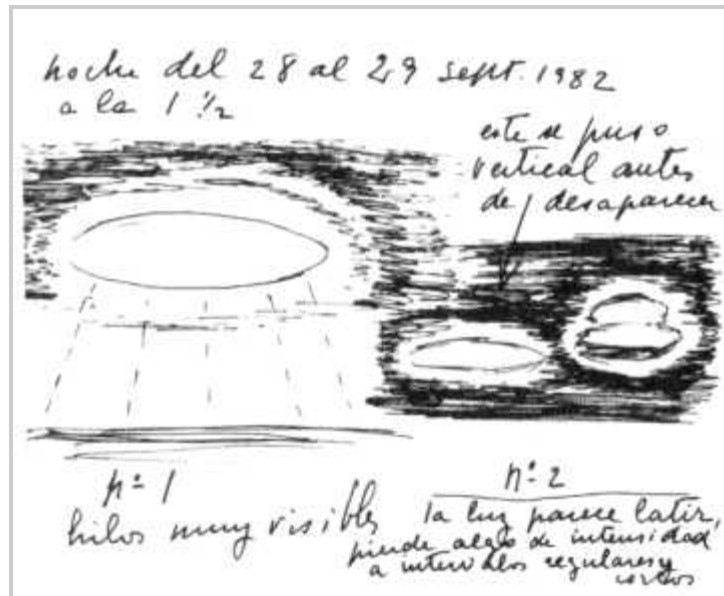 noche del 28 al 29 sept. 1982
a la 1 1/2
este se puso
vertical antes
de desaparecer
nº 1
hilos muy visibles
nº 2
la luz parece latir,
pierde algo de intensidad
a intervalos regulares y
cortos